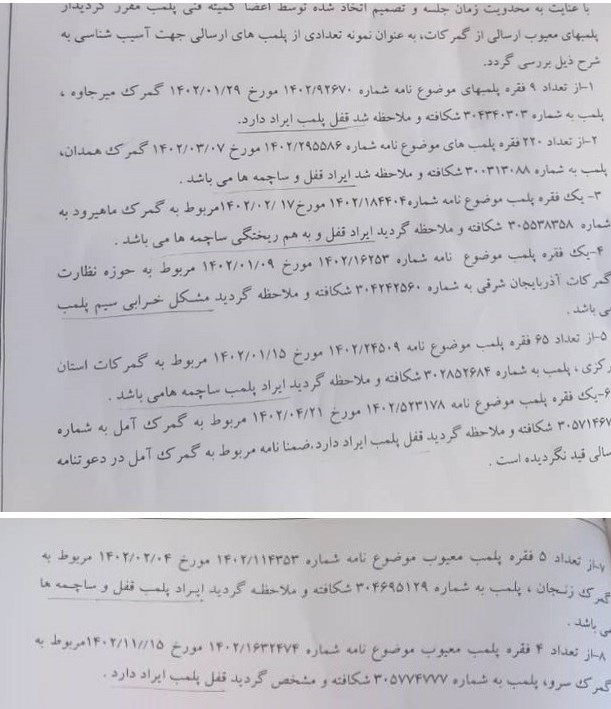 با عنایت به محدودیت زمان جلسه و تصمیم اتخاذ شده توسط اعضا کمیته فنی پلمب مقرر گردیداز
پلمبهای معیوب ارسالی از گمرکات، به عنوان نمونه تعدادی از پلمب های ارسالی جهت آسیب شناسی به
شرح ذیل بررسی گردد.
۱-از تعداد ۹ فقره پلمبهای موضوع نامه شماره ۱۴۰۲/۹۲۶۷۰ مورخ ۱۴۰۲/۰۱/۲۹ گمرک میرجاوه ،
پلمب به شماره ۳۰۴۳۴۰۳۰۳ شکافته و ملاحظه شد قفل پلمب ایراد دارد.
۲-از تعداد ۲۲۰ فقره پلمب های موضوع نامه شماره ۱۴۰۲/۲۹۵۵۸۶ مورخ ۱۴۰۲/۰۳/۰۷ گمرک همدان،
پلمب به شماره ۳۰۰۳۱۳۰۸۸ شکافته و ملاحظه شد ایراد قفل و ساچمه ها می باشد .
۳- یک فقره پلمب موضوع نامه شماره۱۴۰۲/۱۸۴۴۰۴ مورخ۱۴۰۲/۰۲/۱۷مربوط به گمرک ماهیرود به
شماره ۳۰۵۵۳۸۳۵۸ شکافته و ملاحظه گردید ایراد قفل و به هم ریختگی ساچمه ها می باشد .
۴-یک فقره پلمب موضوع نامه شماره ۱۴۰۲/۱۶۲۵۳ مورخ ۱۴۰۲/۰۱/۰۹ مربوط به حوزه نظارت
گمرکات آذربایجان شرقی به شماره ۳۰۴۲۴۲۵۶۰ شکافته و ملاحظه گردید مشکل خرابی سیم پلمب
می باشد .
۵-از تعداد ۶۵ فقره پلمب موضوع نامه ۱۴۰۲/۲۴۵۰۹ مورخ ۱۴۰۲/۰۱/۱۵ مربوط به گمرکات استان
رکزی ، پلمب به شماره ۳۰۲۸۵۲۶۸۴ شکافته و ملاحظه گردید ایراد پلمب ساچمه هامی باشد .
۶-یک فقره پلمب موضوع نامه ۱۴۰۲/۵۲۳۱۷۸ مورخ ۱۴۰۲/۰۴/۲۱ مربوط به گمرک آمل به شماره
۳۰۵۷۱۴۶۷ شکافته و ملاحظه گردید قفل پلمب ایراد دارد.ضمنا نامه مربوط به گمرک آمل در دعوتنامه
سالی قید نگردیده است .
۷-از تعداد ۵ فقره پلمب معیوب موضوع نامه شماره ۱۴۰۲/۱۱۴۳۵۳ مورخ ۱۴۰۲/۰۲/۰۴ مربوط به
گمرک زنجان ، پلمب به شماره ۳۰۴۶۹۵۱۲۹ شکافته و ملاحظه گردید ایراد پلمب قفل و ساچمه ها
می باشد .
۸-از تعداد ۴ فقره پلمب معیوب موضوع نامه شماره ۱۴۰۲/۱۶۳۲۴۷۴ مورخ ۱۴۰۲/۱۱//۱۵مربوط به
گمرک سرو، پلمب به شماره ۳۰۵۷۷۴۷۷۷ شکافته و مشخص گردید قفل پلمب ایراد دارد .